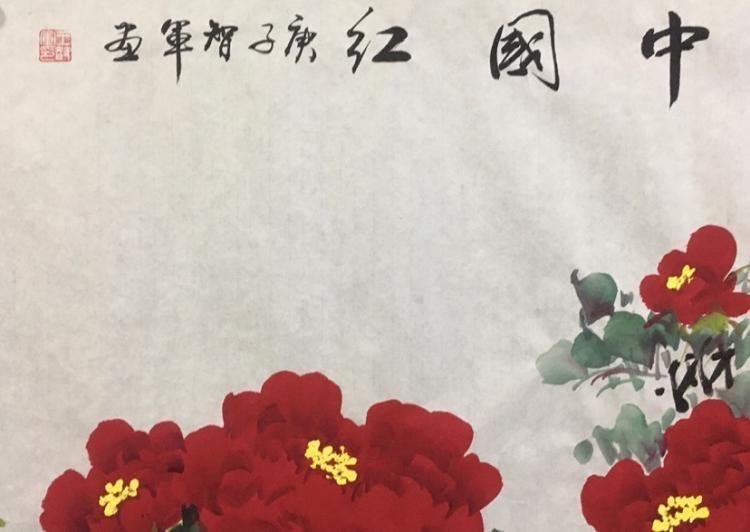 中國红庚子智軍画